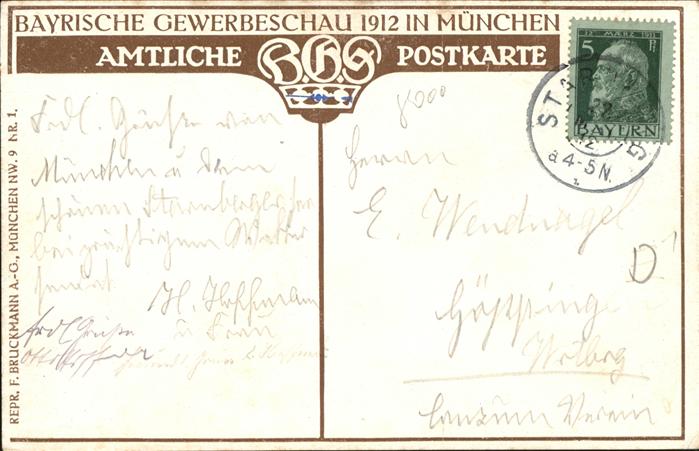 BAYRISCHE GEWERBESCHAU 1912 IN MÜNCHEN
AMTLICHE B.G.S POSTKARTE
12. MÄRZ 1911
5 Pf
BAYERN
STARNBERG
22
12
a 4-5 N.
8000
Frdl. Grüße von
München u. dem
schönen Starnberger See
bei prächtigem Wetter
sendet
H. Hoffmann
u. Frau
Frdl. Grüße
Otto
Herrn
E. Wendnagel
Göppingen
Wrtbrg
D
Verein
REPR. F. BRUCKMANN A.-G., MÜNCHEN NW. 9 NR. 1.